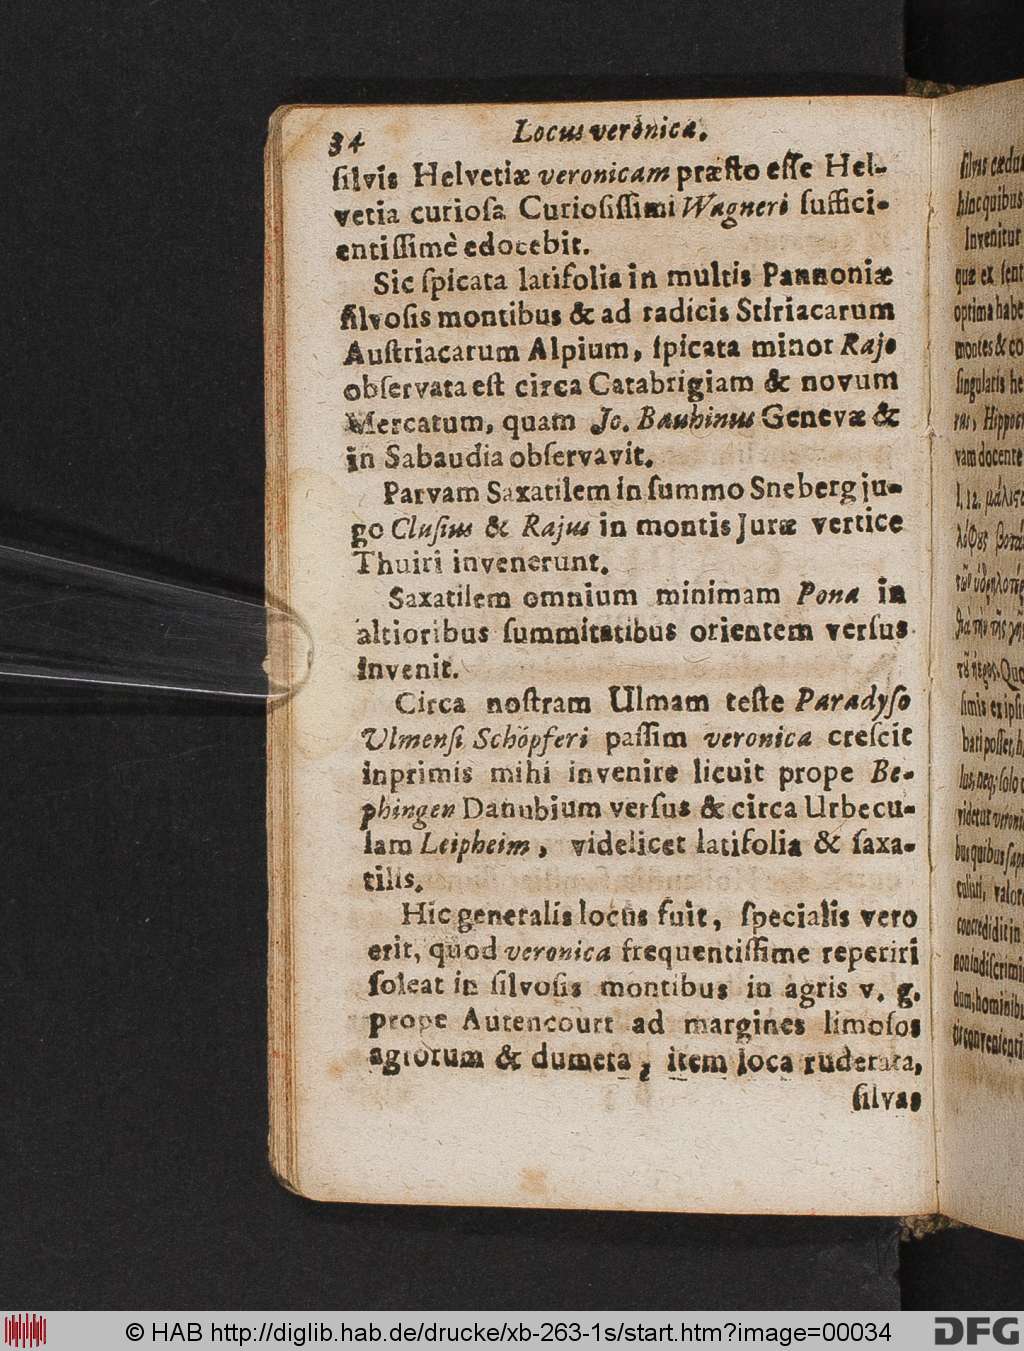 34 Locus veronica.
ſilvis Helvetiæ veronicam præſto eſſe Hel-
vetia curioſa Curioſiſſimi Wagneri ſuffici-
entiſſimè edocebit.
Sic ſpicata latifolia in multis Pannoniæ
ſilvoſis montibus & ad radicis Stiriacarum
Auſtriacarum Alpium, ſpicata minor Rajo
obſervata eſt circa Catabrigiam & novum
Mercatum, quam Jo. Bauhinus Genevæ &
in Sabaudia obſervavit.
Parvam Saxatilem in ſummo Sneberg ju-
go Cluſius & Rajus in montis Juræ vertice
Thuiri invenerunt.
Saxatilem omnium minimam Pona in
altioribus ſummitatibus orientem verſus
invenit.
Circa noſtram Ulmam teſte Paradyſo
Ulmenſi Schöpferi paſſim veronica creſcit
inprimis mihi invenire licuit prope Be-
phingen Danubium verſus & circa Urbecu-
lam Leipheim, videlicet latifolia & ſaxa-
tilis.
Hic generalis locus fuit, ſpecialis vero
erit, quod veronica frequentiſſime reperiri
ſoleat in ſilvoſis montibus in agris v. g.
prope Autencourt ad margines limoſos
agrorum & dumeta, item loca ruderata,
ſilvas
ſilvas cædu
hinc quibus
Invenitur
quæ ex ſent
optima habe
montes & co
ſingularis he
ras, Hippocr
vam docente
l. 12.
ſimis ex ipſi
bati poſſet, h
videtur veroni
bus quibus ſap
culnti, valore
concredidit in
non indiſcrimi
dum, hominibu
tis convenienti
© HAB http://diglib.hab.de/drucke/xb-263-1s/start.htm?image=00034
DFG